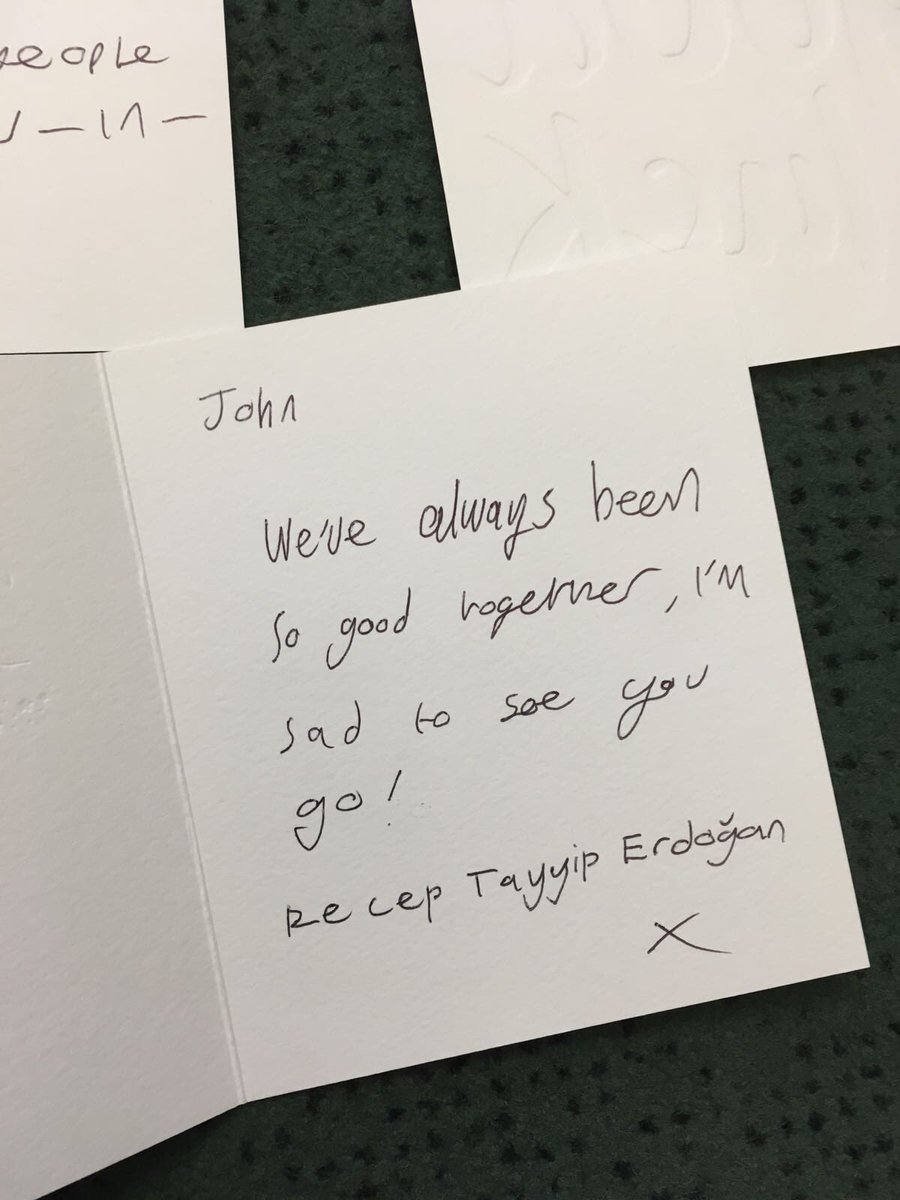 people
-in-
John
We've always been
so good together, I'm
sad to see you
go!
Recep Tayyip Erdoğan
X